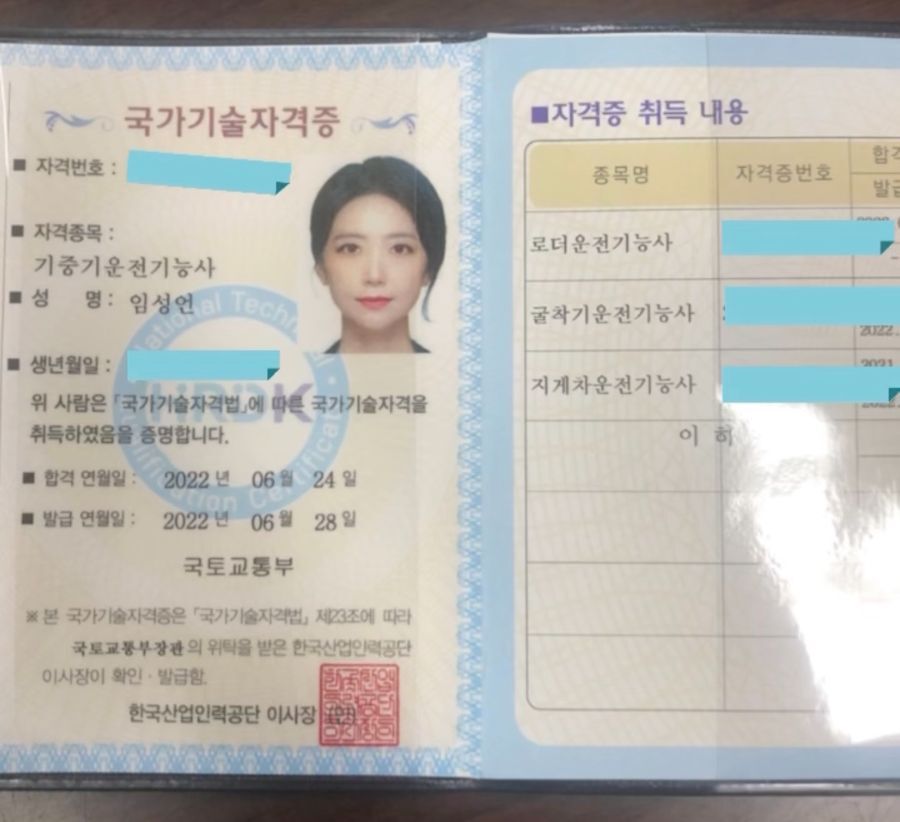 국가기술자격증
■ 자격번호 :
■ 자격종목 :
기중기운전기능사
■ 성 명 : 임성언
■ 생년월일 :
위 사람은 「국가기술자격법」에 따른 국가기술자격을
취득하였음을 증명합니다.
■ 합격 연월일 : 2022 년 06 월 24 일
■ 발급 연월일 : 2022 년 06 월 28 일
국토교통부
※ 본 국가기술자격증은 「국가기술자격법」 제23조에 따라
국토교통부장관의 위탁을 받은 한국산업인력공단
이사장이 확인 · 발급함.
한국산업인력공단 이사장 (인)
HRDK
■자격증 취득 내용
종목명 자격증번호
로더운전기능사
굴착기운전기능사
2022.
지게차운전기능사
2021
이 하